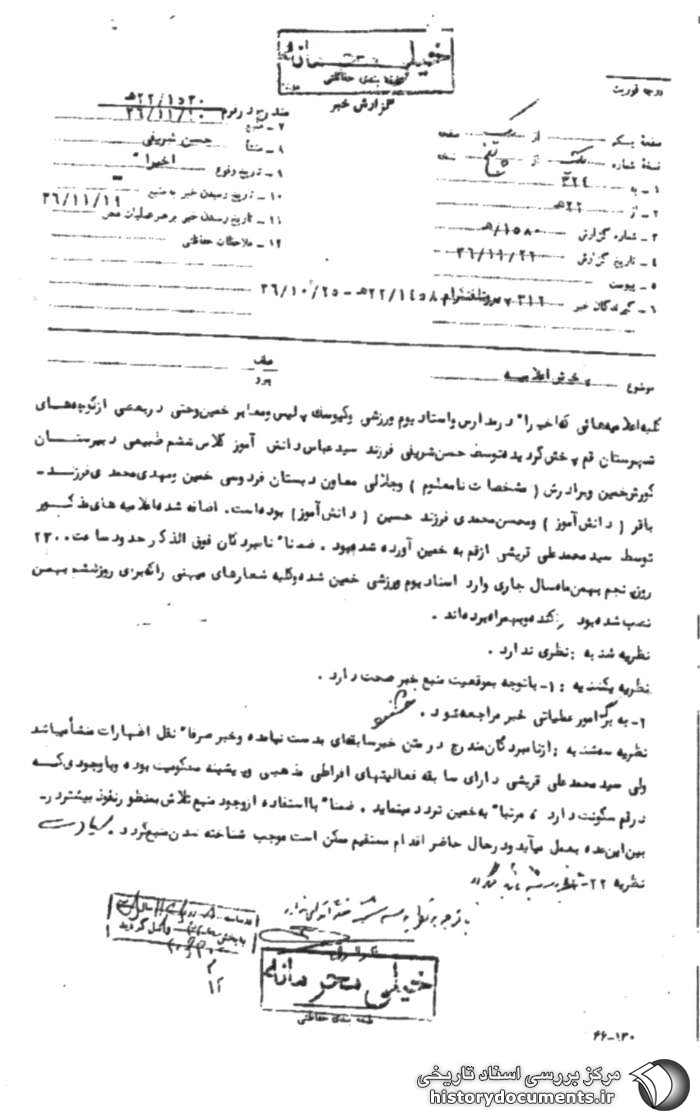 خیلی محرمانه
طبقه بندی حفاظتی
گزارش خبر
درجه فوریت
صفحهٔ یک از یک صفحه
نسخهٔ شماره یک از پنج نسخه
۱ - به ۳۲۴
۲ - از ۲۲هـ
۳ - شماره گزارش ۱۵۸۰/هـ
۴ - تاریخ گزارش ۳۶/۱۱/۲۲
۵ - پیوست
۶ - گیرندگان خبر ۳۱۲
۲۲/۱۴۵۸هـ - ۳۶/۱۰/۲۵
۲۲/۱۵۲۰هـ
۳۶/۱۱/۱۰
۷ - منبع
۸ - منشأ حسن شریفی
۹ - تاریخ وقوع اخیراً
۱۰ - تاریخ رسیدن خبر به منبع
۱۱ - تاریخ رسیدن خبر به رهبر عملیات ۳۶/۱۱/۱۹
۱۲ - ملاحظات حفاظتی
موضوع پخش اعلامیه
عطف
پیرو
کلیه اعلامیه‌هائی که اخیراً در مدارس و استادیوم ورزشی و کیوسک پلیس و معابر خمین و حتی در بعضی از کوچه‌های
شهرستان قم پخش گردیده توسط حسن شریفی فرزند سید عباس دانش آموز کلاس ششم طبیعی دبیرستان
کورش خمین و برادرش (مشخصات نامعلوم) و جلالی معاون دبستان فردوسی خمین و مهدی محمدی فرزند -
باقر (دانش‌آموز) و محسن محمدی فرزند حسین (دانش‌آموز) بوده‌است. اضافه شده اعلامیه های مذکور
توسط سید محمد علی قریشی از قم به خمین آورده شده بود. ضمناً نامبردگان فوق الذکر حدود ساعت ۲۳۰۰
روز پنجم بهمن‌ماه سال جاری وارد استادیوم ورزشی خمین شده و کلیه شعارهای میهنی را که برای روز ششم بهمن
نصب شده بود کنده و بهمراه برده‌اند.
نظریه شنبه : نظری ندارد.
نظریه یکشنبه : ۱- با توجه بموقعیت منبع خبر صحت دارد.
۲- به برگ امور عملیاتی خبر مراجعه شود.
نظریه سه‌شنبه : از نامبردگان مندرج در متن خبر سابقه‌ای بدست نیامده و خبر صرفاً نقل اظهارات منشأ میباشد
ولی سید محمد علی قریشی دارای سابقه فعالیتهای افراطی مذهبی و پیشینه محکومیت بوده و با وجودی که
در قم سکونت دارد ، مرتباً به خمین تردد مینماید. ضمناً با استفاده از وجود منبع تلاش بمنظور نفوذ بیشتر در -
بین این عده بعمل میآید و در حال حاضر اقدام مستقیم ممکن است موجب شناخته شدن منبع گردد.
نظریه ۲۲-
خیلی محرمانه
طبقه بندی حفاظتی
۶۶-۱۳۰
مرکز بررسی اسناد تاریخی
historydocuments.ir